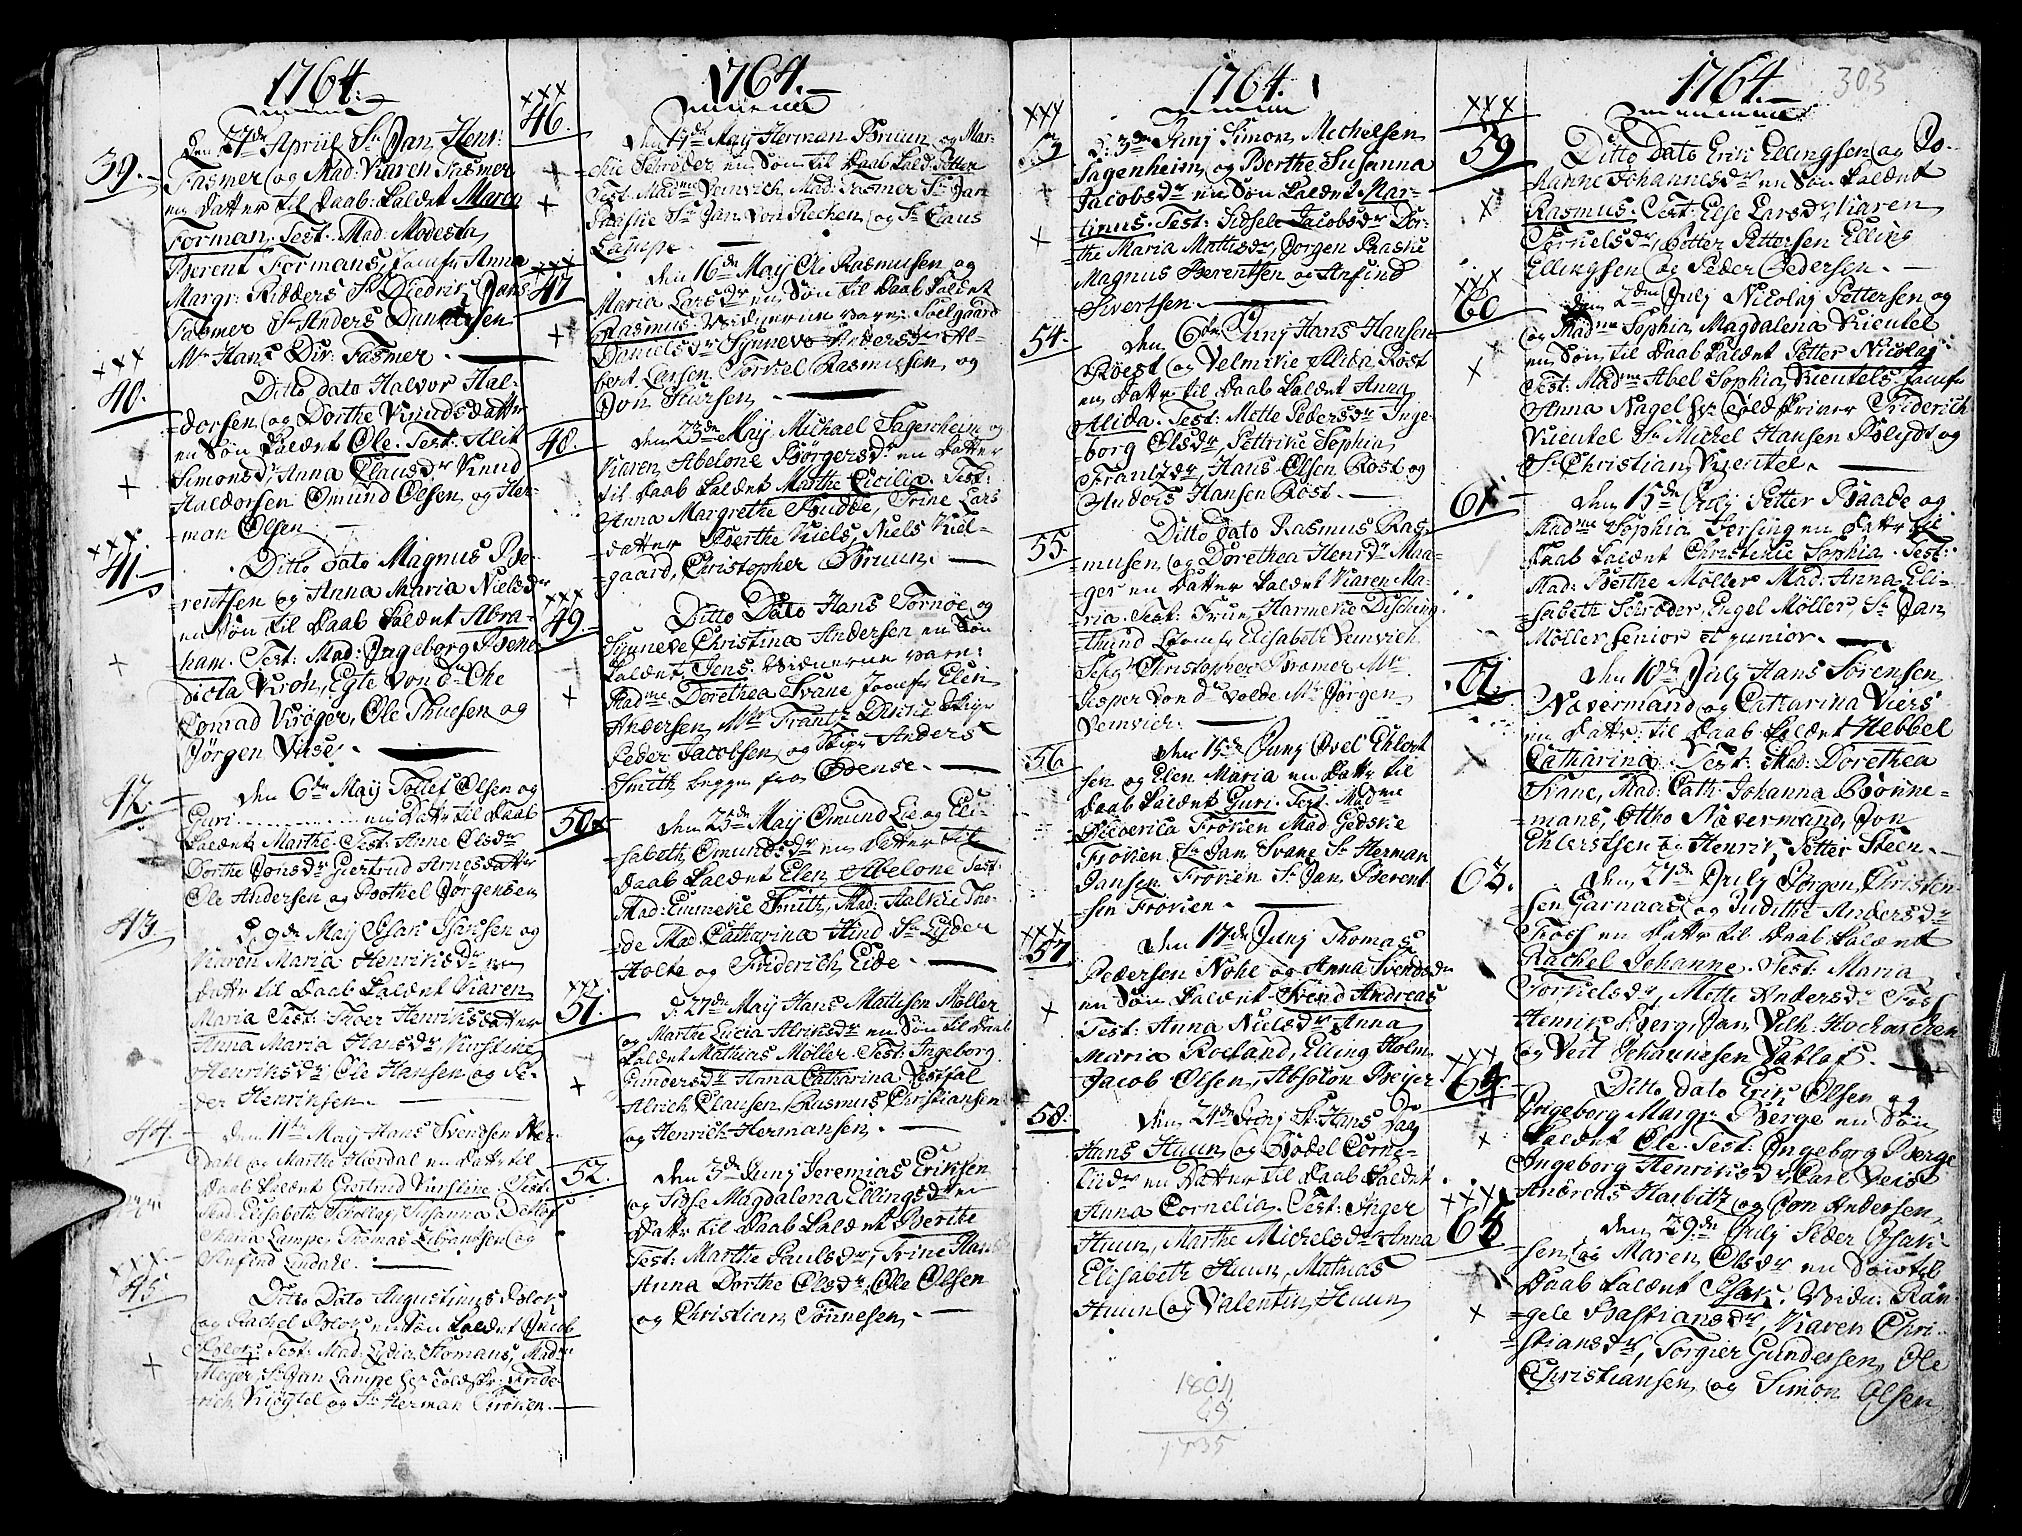 1764.
39.
Den 27de Apriil Sr Jan Henr:
Fasmer og Mad: Karen Fasmer
en datter til daab: kaldet Maren
Forman. Test. Mad. Modesta
Berent Formans, Jomfr Anna
Margr: Ridders Sr Diedrik Jans
Fasmer Sr Anders Danielsen
Mr Hans Div. Fasmer.
xxx
40.
Ditto dato Halvor Hal-
dorsen og Dorthe Knudsdatter
en Søn kaldet Ole. Test: Alit
Simonsdr Anna Clausdr Knud
Haldorsen Omund Olsen, og Her-
man Olsen
xxx
41.
Ditto dato Magnus Be-
rentsen og Anna Maria Nielsdr
en Søn til daab kaldet Abra-
ham. Test: Mad: Ingeborg Bene-
dicta Kroh,
Conrad Krøger, Ole Thuesen og
Jørgen Vise.
42.
Den 6te Maij Tollef Olsen og
Guri en datter til daab
kaldet Marthe. Test: Anne Olsdr
Dorthe Jonsdr Giertrud Arnesdatter
Ole Andersen og Bothel Jørgensen
43.
D. 9de Maij Isak Isaksen og
Karen Maria Henriksdr en
datter til daab kaldet Karen
Maria Test: Henriksdatter
Anna Maria Hansdr, Kirstine
Henriksdr, Ole Hansen og Pe-
der Henriksen.
44.
Den 11te Maij Hans Svendsen
dahl og Marthe en datter til
daab kaldet Giertrud Kirstine. Test:
Mad: Elisabeth Susanna
Maria Lampe, Thomas og
Lindahl.
xxx
45.
Ditto dato Augustinus
og Rachel en Søn kaldet Jacob
Test: Mad: Lydia Thomas, Mad:
Meyer, Sr Jan Lampe Fride-
rich og Sr Herman Frøkien.
1764.
xxx
46.
Den 14de Maij Herman Bruun og Mar-
Schrøder en Søn til daab kald:
Test: Madme Mad: Fasmer Sr Jan
Sr Jan von Recken, og Sr Claus
Lampe.
xxx
47.
Den 16de Maij Ole Rasmusen og
Maria Larsdr en Søn til daab kaldet
Rasmus. Vidnerne vare: Solgaard
Danielsdr Synneve Andersdr Al-
bert Larsen, Torkel Rasmusen, og
Jon Siursen.
48.
Den 23de Maij Michael Sagenheim og
Karen Abelone Børgersdr en datter
til daab kaldet Marthe Cicilia. Test:
Anna Margrethe Budde, Trine Lars
datter Berthe Niels, Niels Kiel-
gaard, Christopher Bruun.
xxx
49.
Ditto Dato Hans Tornøe og
Synneve Christina Andersen en Søn
kaldet Jens. Vidnerne vare:
Madme Dorethea Svane Jomfr Elen
Andersen, Mr Frantz Skipr
Peder Jacobsen, og Skipr Anders
Smith begge fra Odense.
50.
Den 23de Maij Omund Lie og Eli-
sabeth Omundsdr en datter til
daab kaldet Elen Abelone Test:
Mad: Emmekie Smith, Mad: Aalkie Tho-
de Mad Catharina Hind Sr Eyder
Holte og Friderich Eide.
xxx
51.
D. 27de Maij Hans Mattisen Møller
og Marthe Lucia Alriksdr en Søn til daab
kaldet Mathias Møller. Test: Ingeborg
Gundersdr Anna Catharina Vestfal
Alrich Clausen, Rasmus Christiansen
og Henrich Hermansen.
52.
Den 3de Junj Jeremias Eriksen
og Sidse Magdalena Ellingsdr en
datter til daab kaldet Berthe
Test: Marthe Paulsdr, Trine Hans
Anna Dorthe Olsdr, Ole Olsen
og Christian Tønnesen.
1764.
xxx
53
D. 3de Junj Simon Michelsen
Sagenheim og Berthe Susanna
Jacobsdr en Søn kaldet Mar-
tinus. Test: Sidsele Jacobsdr Dor-
the Maria Mathisdr, Jørgen Baskie
Magnus Berentsen og Arfind
Sivertsen.
54.
Den 6te Junj Hans Hansen
Roest og Velmikie Alida Rost
en datter til daab kaldet Anna
Alida. Test: Mette Pedersdr Inge-
borg Olsdr, Pettrike Sophia
Frantzdr, Hans Olsen Rost og
Hansen Rost.
55.
Ditto dato Rasmus Ras-
musen og Dorethea Henrdr Maa-
ger en datter kaldet Karen Ma-
ria. Test: Frue Harmekie Disching-
thund Elisabeth Veinvich.
Christopher Bramer Mr
Jasper vond Velde Mr Jørgen
Veinvich.
56
Den 15de Junj Axel Ehlert
sen og Elen Maria en datter til
daab kaldet Guri. Test. Madme
Diderica Frøkien Mad: Gedskie
Frøkien Sr Jan Svane Sr Herman
Jansen Frøkien Sr Jan Berent
sen Frøkien.
xxx
57
Den 17de Junj Thomas
Pedersen Nohe og Anna Svendsdr
en Søn kaldet Svend Andreas
Test: Anna Nielsdr Anna
Maria Roeland, Elling Holm
Jacob Olsen, Absolon Beijer
58.
Den 24de Junj St. Hans Dag
Hans Huun og Bodel Corne-
liidr en datter til daab kaldet
Anna Cornelia. Test: Inger
Huun, Marthe Michelsdr Anna
Elisabeth Huun, Mathias
Huun og Valentin Huun
1804
69
1735
1764.
303
xxx
59
Ditto dato Erik Ellingsen og Jo-
hanne Johannesdr en Søn kaldet
Rasmus. Test: Else Larsdr, Karen
Torkielsdr, Petter Pettersen Elling
Ellingsen og Peder Pedersen.
xxx
60
Den 2den Julij Nicolaj Pettersen og
og Madme Sophia Magdalena Kientel
en Søn til daab kaldet Petter Nicolaj
Test: Madme Abel Sophia Kientels Jomfr
Anna Nagel Hr: Told Friderich
Kientel Sr Michel Hansen Blijdt og
Sr Christian Kientel.
61.
Den 15de Julij Petter Baade og
Madme Sophia Forsing en datter til
daab kaldet Christinie Sophia. Test:
Mad: Berthe Møller Mad: Anna Eli-
sabeth Schrøder, Engel Møller, Sr Jan
Møller senior et junior.
62.
Den 18de Julij Hans Sørensen
Nævermand og Catharina Viers
en datter til daab kaldet Hebbel
Catharina. Test: Mad: Dorethea
Svane, Mad: Cath: Johanna Bønne-
mans, Ottho Nævermand, Jon
Ehlertsen og Henrik Petter Steen.
63.
Den 27de Julij Jørgen Christen
sen Garnaas og Judithe Andersdr
Foss en datter til daab kaldet
Rachel Johanne. Test: Maria
Torkielsdr, Mette Andersdr Foss
Henrik Berg, Jan Vilh: Hockirchen
og Veit Johannesen Datlof.
xxx
64
Ditto dato Erik Olsen og
Ingeborg Margr: Berge en Søn
kaldet Ole. Test: Ingeborg Berge
Ingeborg Henriksdr, Carl Veis
Andreas Harbitz og Jon Andersen,
xxx
65
Den 29de Julij Peder Isak-
sen og Maren Olsdr en Søn til
daab kaldet Isak. Vidn: Ran-
gele Bastiansdr, Karen Chri-
stiansdr, Torgier Gundersen, Ole
Christiansen og Simon Olsen